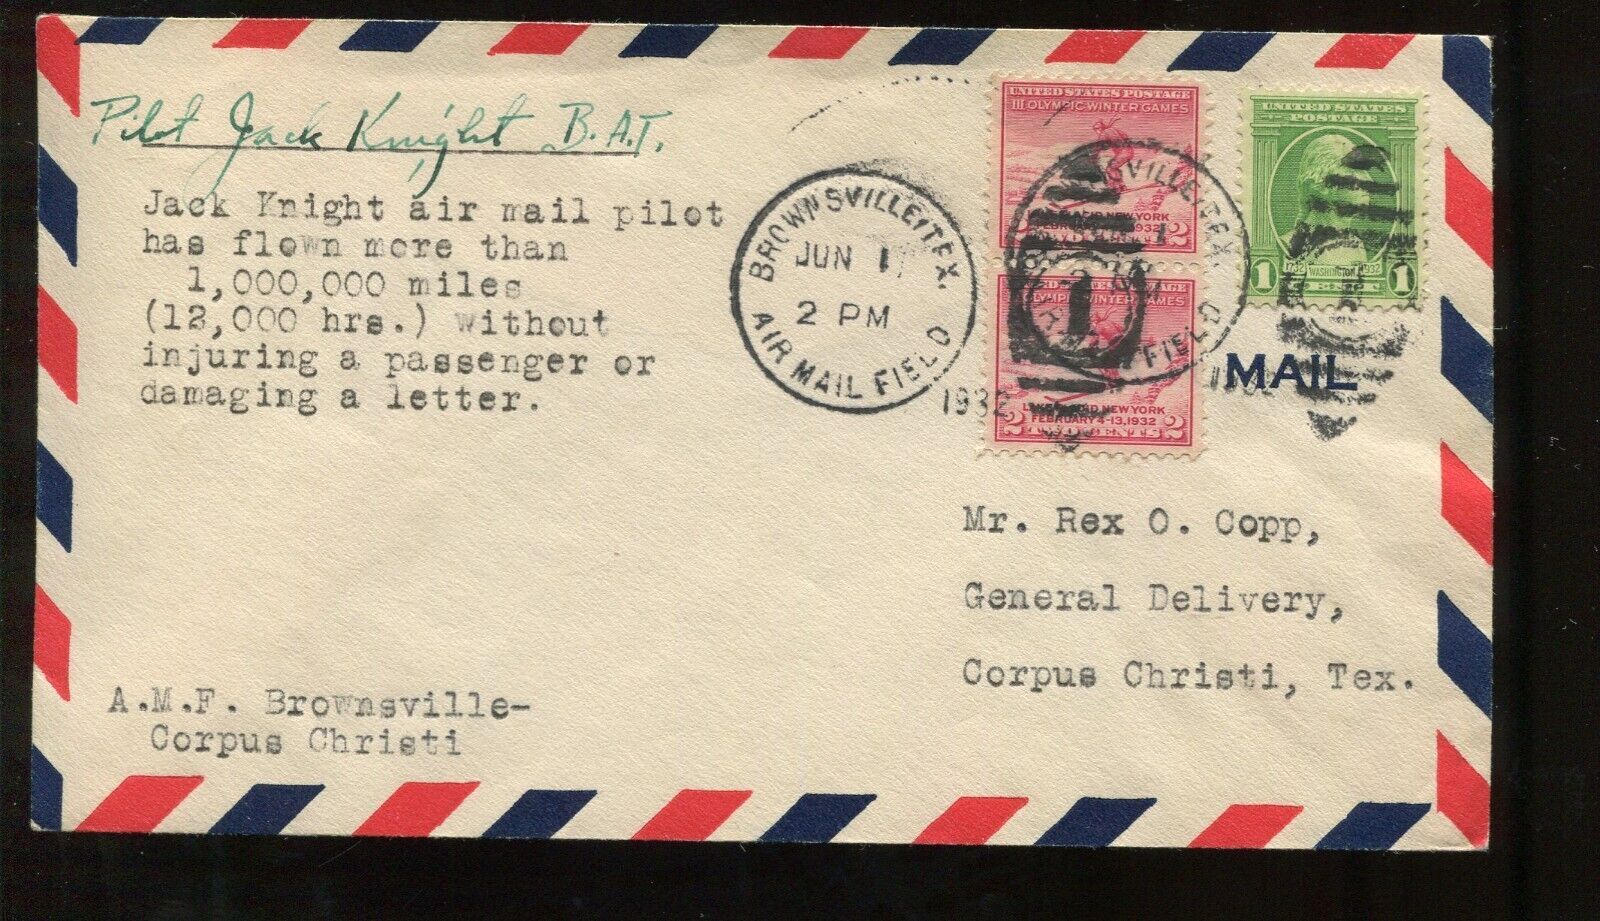 Pilot Jack Knight B.A.T.
Jack Knight air mail pilot
has flown more than
1,000,000 miles
(12,000 hrs.) without
injuring a passenger or
damaging a letter.
BROWNSVILLE, TEX.
JUN 1
2 PM
AIR MAIL FIELD
1932
UNITED STATES POSTAGE
III OLYMPIC WINTER GAMES
NEW YORK
1932
2
UNITED STATES POSTAGE
OLYMPIC WINTER GAMES
NEW YORK
FEBRUARY 4-13, 1932
2 TWO CENTS 2
UNITED STATES
POSTAGE
1732 WASHINGTON 1932
1 1
SVILLE, TEX.
FIELD
1
MAIL
Mr. Rex O. Copp,
General Delivery,
Corpus Christi, Tex.
A.M.F. Brownsville-
Corpus Christi